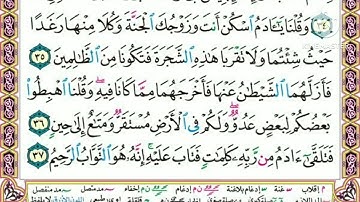 ٣٤ وَقُلْنَا يَـٰٓـَٔادَمُ ٱسْكُنْ أَنتَ وَزَوْجُكَ ٱلْجَنَّةَ وَكُلَا مِنْهَا رَغَدًا
حَيْثُ شِئْتُمَا وَلَا تَقْرَبَا هَـٰذِهِ ٱلشَّجَرَةَ فَتَكُونَا مِنَ ٱلظَّـٰلِمِينَ ٣٥
فَأَزَلَّهُمَا ٱلشَّيْطَـٰنُ عَنْهَا فَأَخْرَجَهُمَا مِمَّا كَانَا فِيهِ ۖ وَقُلْنَا ٱهْبِطُوا۟
بَعْضُكُمْ لِبَعْضٍ عَدُوٌّ ۖ وَلَكُمْ فِى ٱلْأَرْضِ مُسْتَقَرٌّ وَمَتَـٰعٌ إِلَىٰ حِينٍ ٣٦
فَتَلَقَّىٰٓ ءَادَمُ مِن رَّبِّهِۦ كَلِمَـٰتٍ فَتَابَ عَلَيْهِ ۚ إِنَّهُۥ هُوَ ٱلتَّوَّابُ ٱلرَّحِيمُ ٣٧
م إقلاب غنة إدغام بلاغنة إدغام إخفاء مد متصل مد منفصل